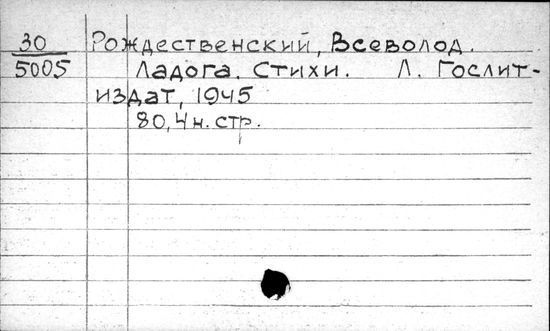 30 Рождественский, Всеволод.
5005 Ладога. Стихи. Л. Гослит-
издат, 1945
80,4 н. стр.